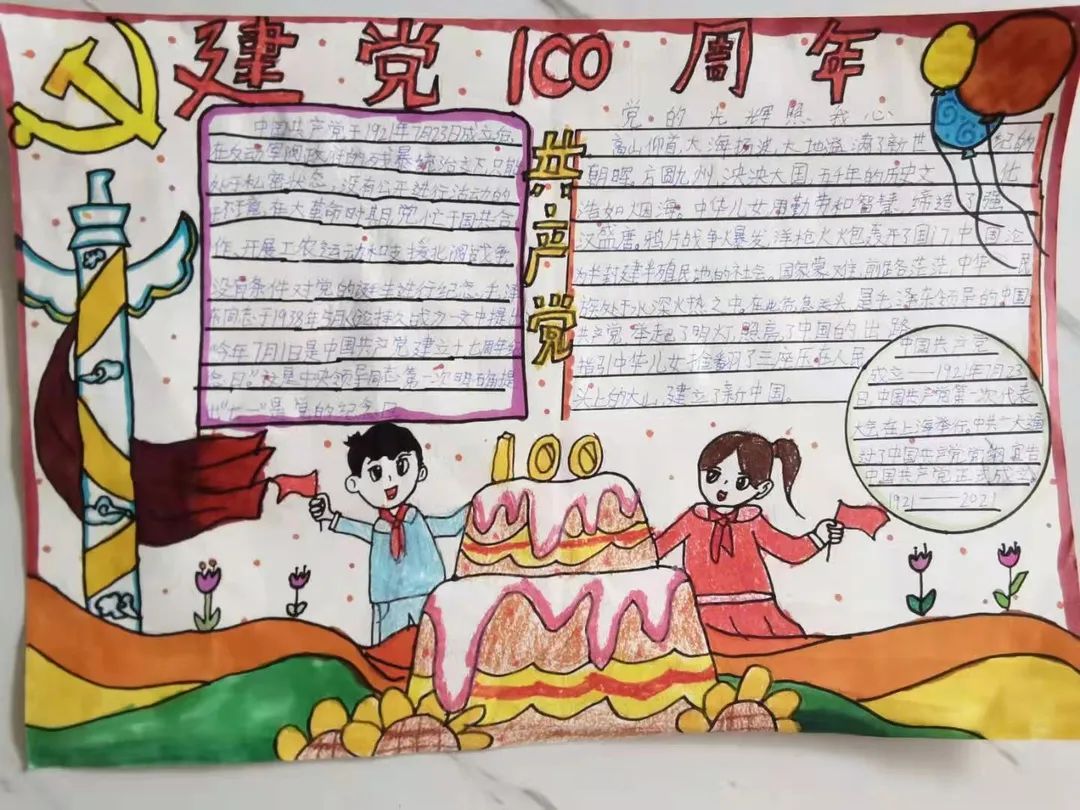 建党100周年
中国共产党于1921年7月23日成立后,
在反动军阀政府的残暴统治之下,只能
处于私密状态,没有公开进行活动的
环境。在大革命时期,党忙于国共合
作、开展工农运动和支援北伐战争,
没有条件对党的诞生进行纪念。毛泽
东同志于1938年5月《论持久战》一文中提出
"今年7月1日是中国共产党建立十七周年纪
念日"这是中央领导同志第一次明确提
"七一"是党的纪念日
共产党
党的光辉照我心
高山仰首,大海扬波,大地溢满了新世纪的
朝晖。方圆九州,泱泱大国,五千年的历史文化
浩如烟海。中华儿女用勤劳和智慧,缔造了强
汉盛唐。鸦片战争爆发,洋枪火炮轰开了国门,中国沦
为半封建半殖民地的社会,国家蒙难,前路茫茫,中华民
族处于水深火热之中,在此危急关头,是毛泽东领导的中国
共产党,举起了明灯,照亮了中国的出路
指引中华儿女推翻了三座压在人民
头上的大山,建立了新中国。
中国共产党
成立——1921年7月23
日,中国共产党第一次代表
大会在上海举行,中共一大通
过了中国共产党党纲,宣告
中国共产党正式成立。
1921——2021
100